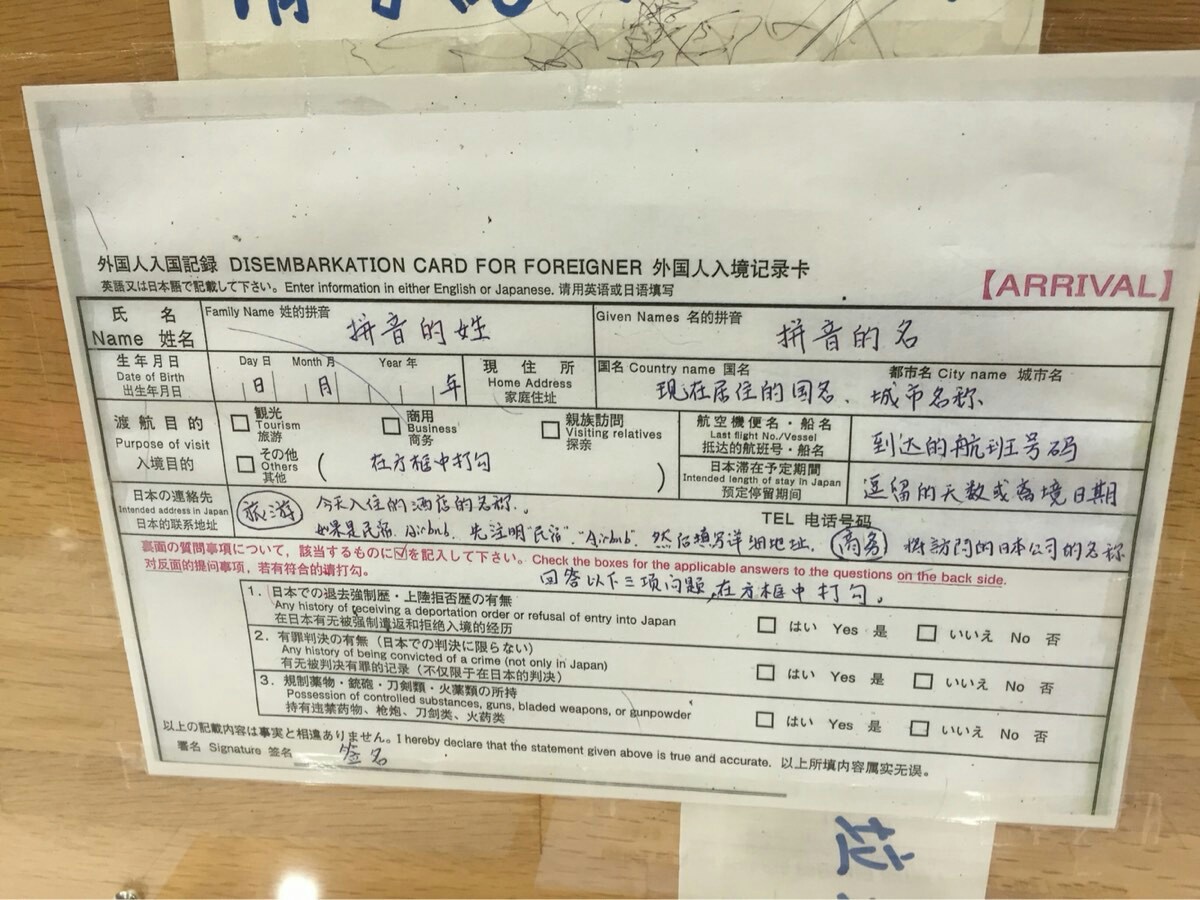 外国人入国記録 DISEMBARKATION CARD FOR FOREIGNER 外国人入境记录卡
英語又は日本語で記載して下さい。Enter information in either English or Japanese. 请用英语或日语填写
【ARRIVAL】
氏 名
Name 姓名
Family Name 姓的拼音
拼音的姓
Given Names 名的拼音
拼音的名
生年月日
Date of Birth
出生年月日
Day 日 Month 月 Year 年
日 月 年
現 住 所
Home Address
家庭住址
国名 Country name 国名
现在居住的国名、
都市名 City name 城市名
城市名称
渡航目的
Purpose of visit
入境目的
観光
Tourism
旅游
商用
Business
商务
親族訪問
Visiting relatives
探亲
その他
Others
其他
( 在方框中打勾 )
航空機便名・船名
Last flight No./Vessel
抵达的航班号・船名
到达的航班号码
日本滞在予定期間
Intended length of stay in Japan
预定停留期间
逗留的天数或离境日期
日本の連絡先
Intended address in Japan
日本的联系地址
TEL 电话号码
旅游 今天入住的酒店的名称.
如果是民宿. Airbnb. 先注明"民宿"."Airbnb". 然后填写详细地址. 商务 将訪問的日本公司的名称
裏面の質問事項について，該当するものに☑を記入して下さい。Check the boxes for the applicable answers to the questions on the back side.
对反面的提问事项，若有符合的请打勾。
回答以下三项问题,在方框中打勾。
1. 日本での退去強制歴・上陸拒否歴の有無
Any history of receiving a deportation order or refusal of entry into Japan
在日本有无被强制遣返和拒绝入境的经历
□ はい Yes 是 □ いいえ No 否
2. 有罪判決の有無（日本での判決に限らない）
Any history of being convicted of a crime (not only in Japan)
有无被判决有罪的记录（不仅限于在日本的判决）
□ はい Yes 是 □ いいえ No 否
3. 規制薬物・銃砲・刀剣類・火薬類の所持
Possession of controlled substances, guns, bladed weapons, or gunpowder
持有违禁药物、枪炮、刀剑类、火药类
□ はい Yes 是 □ いいえ No 否
以上の記載内容は事実と相違ありません。I hereby declare that the statement given above is true and accurate. 以上所填内容属实无误。
署名 Signature 签名
签名